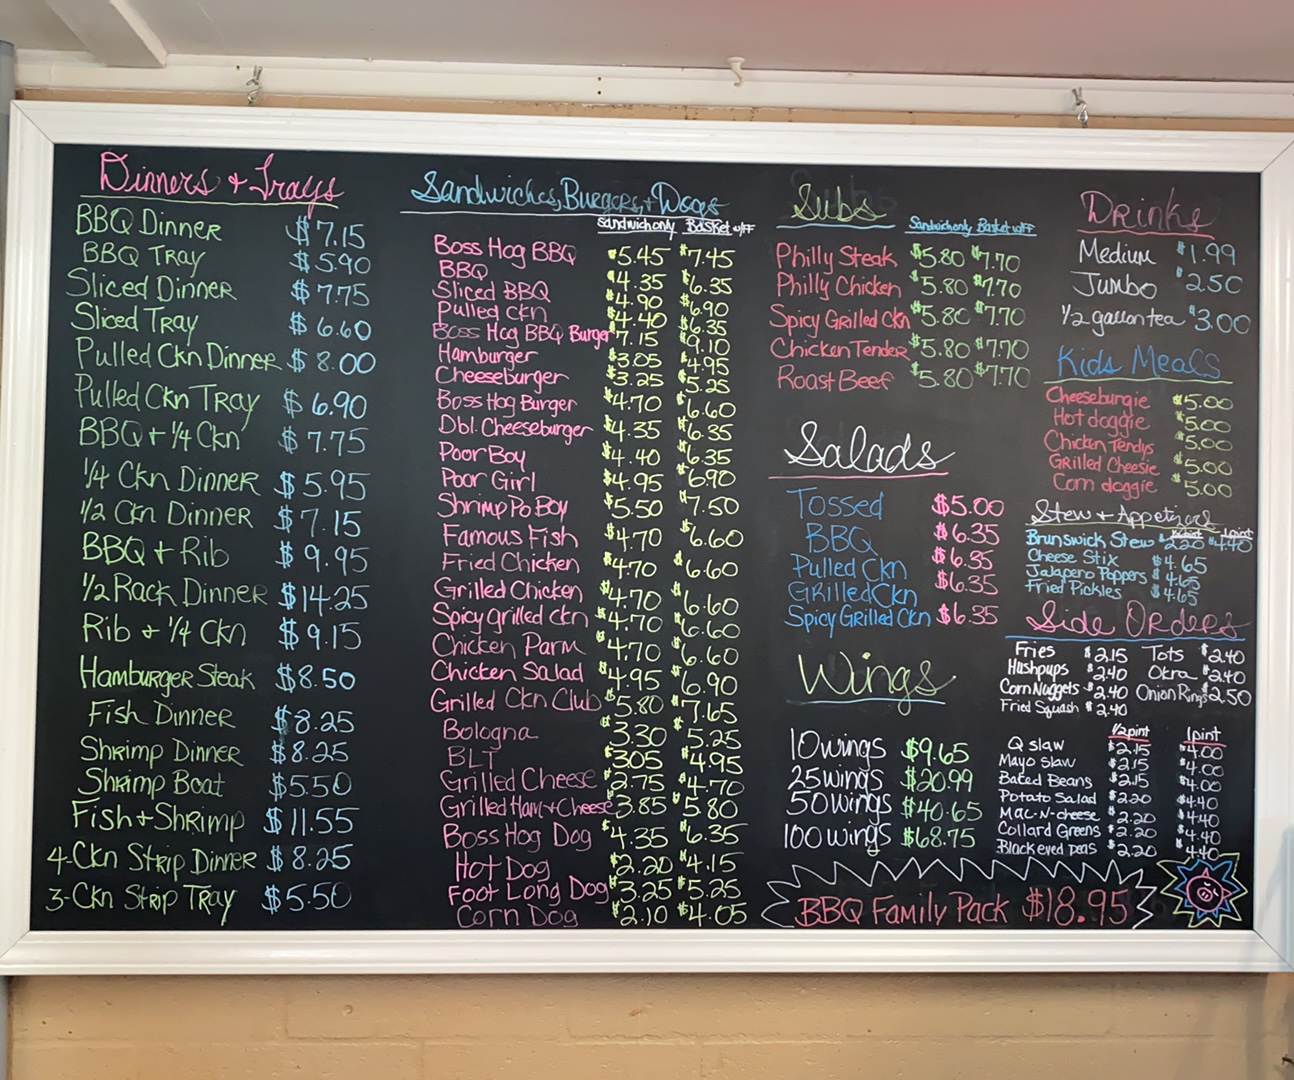 Dinners + Trays
BBQ Dinner $7.15
BBQ Tray $5.90
Sliced Dinner $7.75
Sliced Tray $6.60
Pulled Ckn Dinner $8.00
Pulled Ckn Tray $6.90
BBQ + 1/4 Ckn $7.75
1/4 Ckn Dinner $5.95
1/2 Ckn Dinner $7.15
BBQ + Rib $9.95
1/2 Rack Dinner $14.25
Rib + 1/4 Ckn $9.15
Hamburger Steak $8.50
Fish Dinner $8.25
Shrimp Dinner $8.25
Shrimp Boat $5.50
Fish + Shrimp $11.55
4-Ckn Strip Dinner $8.25
3-Ckn Strip Tray $5.50
Sandwiches, Burgers, + Dogs
Sandwich only Basket w/FF
Boss Hog BBQ $5.45 $7.45
BBQ $4.35 $6.35
Sliced BBQ $4.90 $6.90
Pulled ckn $4.40 $6.35
Boss Hog BBQ Burger $7.15 $9.10
Hamburger $3.05 $4.95
Cheeseburger $3.25 $5.25
Boss Hog Burger $4.70 $6.60
Dbl. Cheeseburger $4.35 $6.35
Poor Boy $4.40 $6.35
Poor Girl $4.95 $6.90
Shrimp Po Boy $5.50 $7.50
Famous Fish $4.70 $6.60
Fried Chicken $4.70 $6.60
Grilled Chicken $4.70 $6.60
Spicy grilled ckn $4.70 $6.60
Chicken Parm $4.70 $6.60
Chicken Salad $4.95 $6.90
Grilled Ckn Club $5.80 $7.65
Bologna $3.30 $5.25
BLT $3.05 $4.95
Grilled Cheese $2.75 $4.70
Grilled Ham + Cheese $3.85 $5.80
Boss Hog Dog $4.35 $6.35
Hot Dog $2.20 $4.15
Foot Long Dog $3.25 $5.25
Corn Dog $2.10 $4.05
Subs
Sandwich only Basket w/FF
Philly Steak $5.80 $7.70
Philly Chicken $5.80 $7.70
Spicy Grilled Ckn $5.80 $7.70
Chicken Tender $5.80 $7.70
Roast Beef $5.80 $7.70
Salads
Tossed $5.00
BBQ $6.35
Pulled Ckn $6.35
Grilled Ckn $6.35
Spicy Grilled Ckn $6.35
Wings
10 wings $9.65
25 wings $20.99
50 wings $40.65
100 wings $68.75
Drinks
Medium $1.99
Jumbo $2.50
1/2 gallon tea $3.00
Kids Meals
Cheeseburgie $5.00
Hot doggie $5.00
Chicken Tendys $5.00
Grilled Cheesie $5.00
Corn doggie $5.00
Stew + Appetizers
1/2 pint 1 pint
Brunswick Stew $2.20 $4.40
Cheese Stix $4.65
Jalapeno Poppers $4.65
Fried Pickles $4.65
Side Orders
Fries $2.15 Tots $2.40
Hushpups $2.40 Okra $2.40
Corn Nuggets $2.40 Onion Rings $2.50
Fried Squash $2.40
1/2 pint 1 pint
Q slaw $2.15 $4.00
Mayo Slaw $2.15 $4.00
Baked Beans $2.15 $4.00
Potato Salad $2.20 $4.40
Mac-N-cheese $2.20 $4.40
Collard Greens $2.20 $4.40
Black eyed peas $2.20 $4.40
BBQ Family Pack $18.95